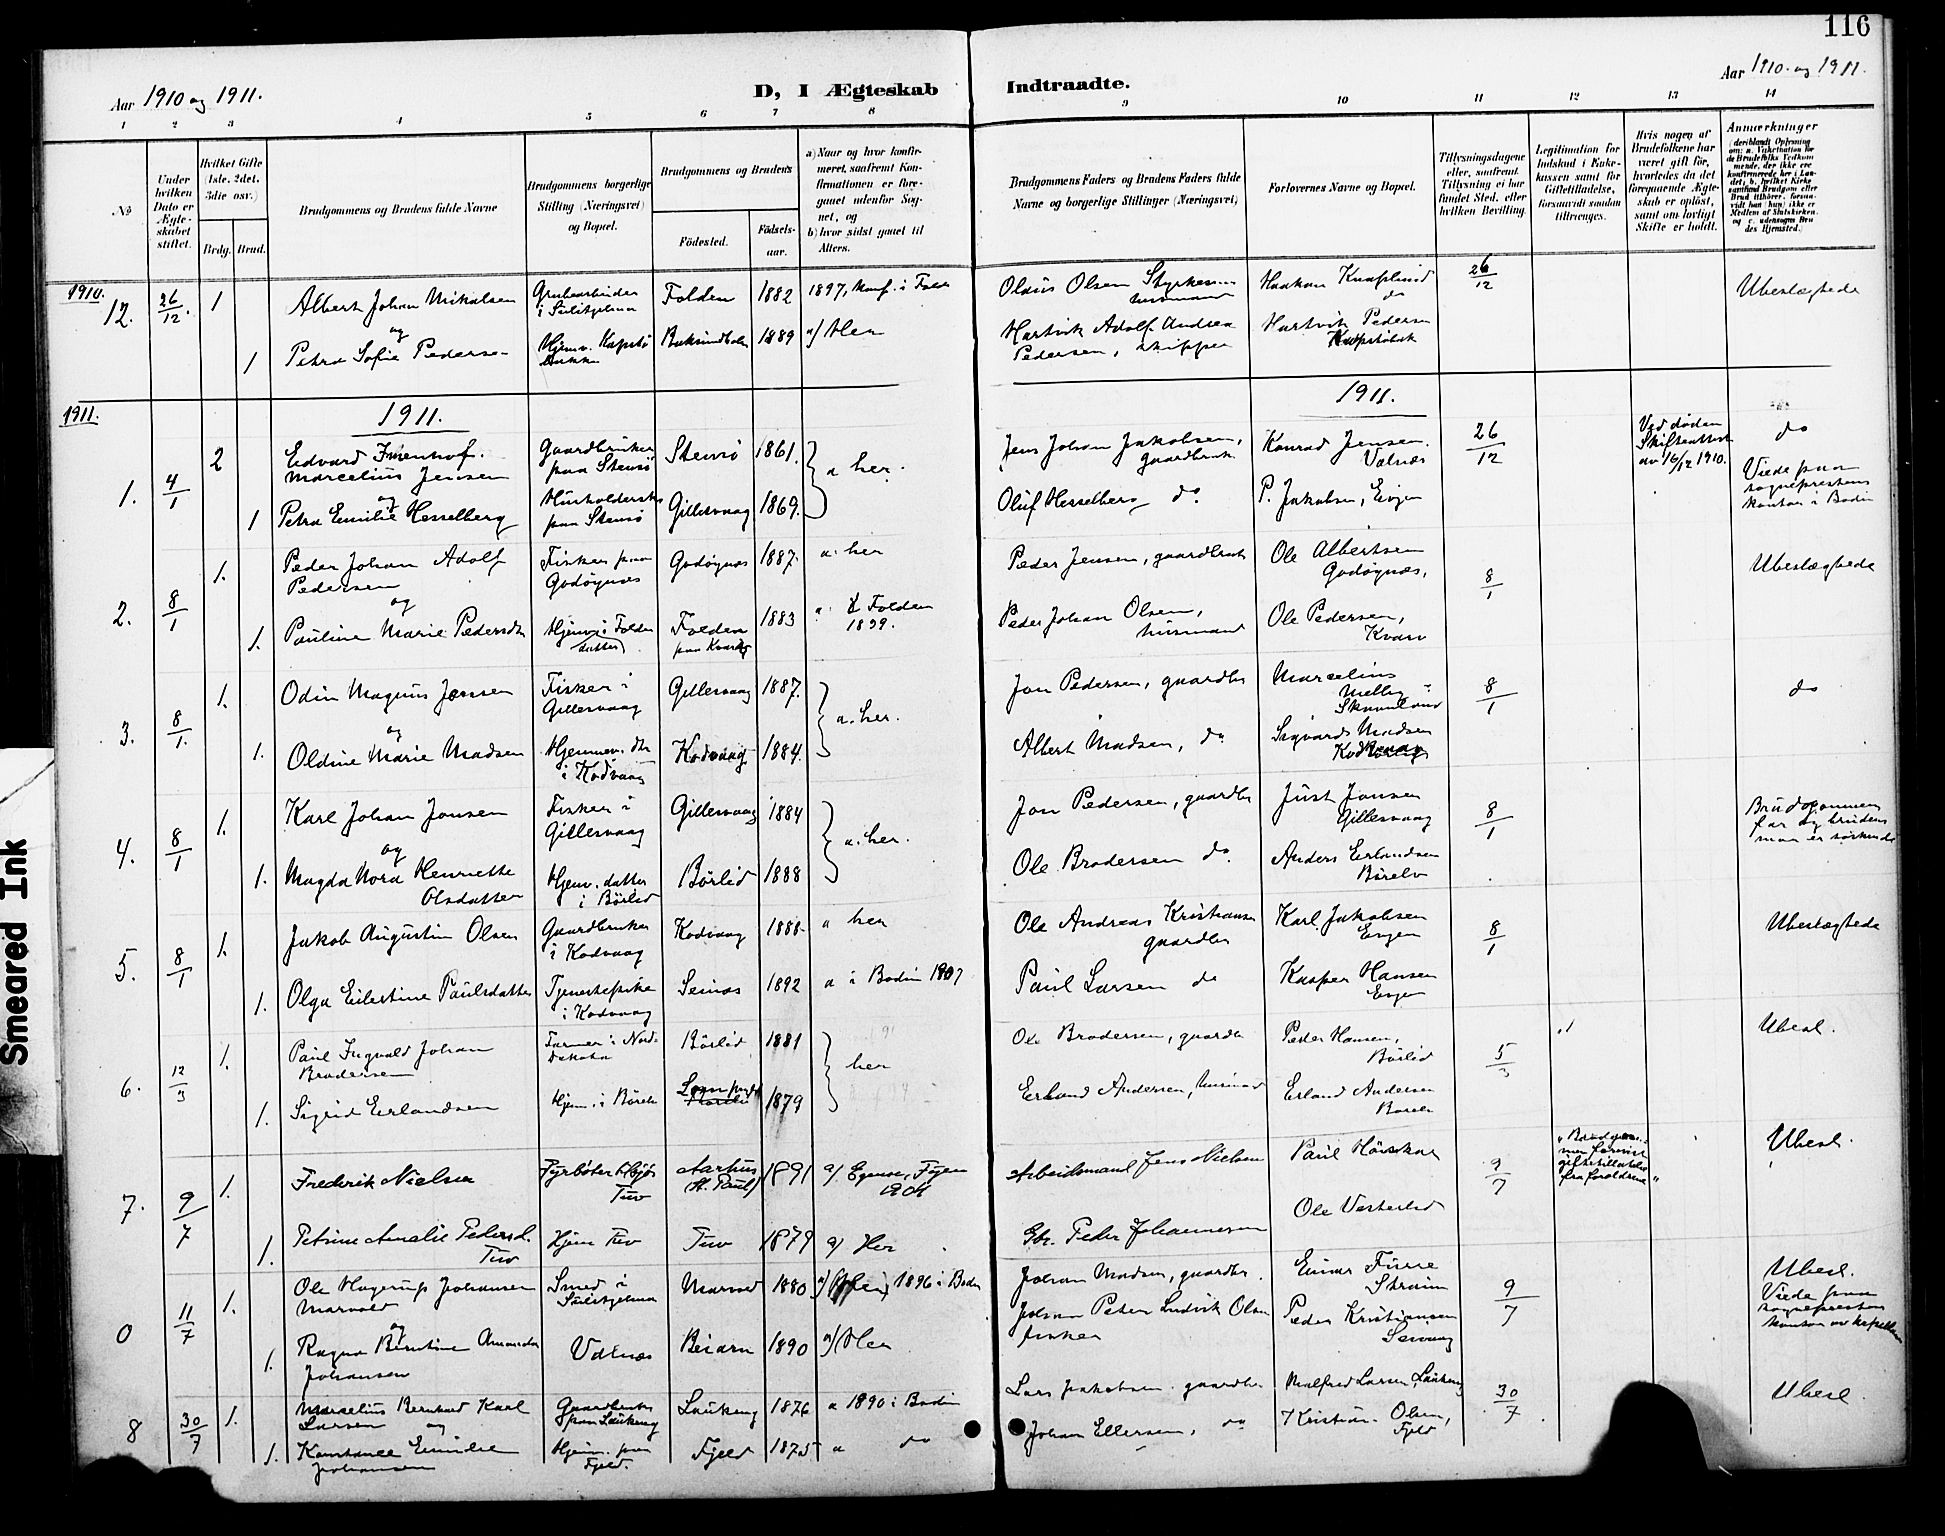 116
Aar 1910 og 1911.
D, I Ægteskab Indtraadte.
Aar 1910 og 1911.
1 2 3 4 5 6 7 8 9 10 11 12 13 14
No
Under hvilken Dato er Ægteskabet stiftet.
Hvilket Gifte (1ste, 2det, 3die osv.)
Brdg. Brud.
Brudgommens og Brudens fulde Navne
Brudgommens borgerlige Stilling (Næringsvei) og Bopæl.
Brudgommens og Brudens
Fødested. Fødselsaar.
a) Naar og hvor konfirmeret, saafremt Konfirmationen er foregaaet udenfor Sognet, og
b) hvor sidst gaaet til Alters.
Brudgommens Faders og Brudens Faders fulde Navne og borgerlige Stillinger (Næringsvei)
Forlovernes Navne og Bopæl.
Tillysningsdagene eller, saafremt Tillysning ei har fundet Sted, efter hvilken Bevilling.
Legitimation for Indskud i Enkekassen samt for Giftetilladelse, forsaavidt saadan tiltrænges.
Hvis nogen af Brudefolkene har været gift før, hvorledes da det foregaaende Ægteskab er opløst, samt om lovligt Skifte er holdt.
Anmærkninger
1910.
12. 26/12. 1 Albert Johan Mikalsen Grubearbeider i Sulitjelma Folden 1882 1897, konf. i Folden Olaus Olsen husmand Haakon Knaplund do 26/12 Ubeslægtede
og
1 Petra Sofie Pedersen Hjemv. 1889 a) Her Hartvik Adolf Andrea Pedersen, skipper Hartvik Pedersen
1911.
1911. 1911.
1. 4/1 2 Edvard Marcelius Jensen Gaardbruker paa Stensø Stensø 1861. a her. Jens Johan Jakobsen, gaardbruk Konrad Jensen Valnæs 26/12 Ved døden Skifteattest av 16/12 1910. do
og
1 Petra Emilie Hesselberg paa Stensø Gillesvaag 1869. Oluf Hesselberg do P. Jakobsen, Evjen Viede paa sogneprestens kontor i Bodin
2. 8/1 1. Peder Johan Adolf Pedersen Fisker paa Godøynes Godøynes 1887. a. her Peder Jensen, gaardbruk Ole Albertsen Godøynæs, 8/1 Ubeslægtede
og
1. Pauline Marie Pedersdtr Hjemv. i Folden datter Folden 1883 Folden 1899. Peder Johan Olsen, husmand Ole Pedersen, Kvarv
3. 8/1. 1. Odin Magnus Jonsen Fisker i Gillesvaag Gillesvaag 1887. a. her. Jon Pedersen, gaardbr Marcelius 8/1 do
og
1. Oldine Marie Madsen Hjemmev. dtr i Kodvaag Kodvaag 1884. Albert Madsen, do Sigvard Madsen
4. 8/1 1. Karl Johan Jonsen Fisker i Gillesvaag Gillesvaag 1884 a. her. Jon Pedersen, gaardbr Just Jonsen Gillesvaag 8/1 Brudgommens far og brudens mor er søskende
og
1. Magda Nora Henriette Olsdatter Hjemv. datter i Børlid Børlid 1888 Ole Brodersen do Anders Erlandsen Børelv
5. 8/1 1. Jakob Augustin Olsen Gaardbruker i Kodvaag Kodvaag 1888. a her Ole Andreas Kristiansen gaardbr Karl Jakobsen Evjen 8/1 Ubeslægtede
1. Olga Eilertine Paulsdatter Tjenestepike i Kodvaag Seines 1892 a i Bodin 1907 Paul Larsen do Kasper Hansen Evjen
6. 12/3 1. Paul Ingvald Johan Brodersen Farmer i Nord Dakota Børlid 1881 her Ole Brodersen, gaardbr Peder Hansen, Børlid 5/3 Ubesl.
1. Sigrid Erlandsen Hjem. i Børelv 1879 Erland Andersen, husmand Erland Andersen Børelv
7. 9/7 1. Frederik Nielsen Fyrbøter Tuv Aarhus (St. Paul) 1891 a) Egense, Fyen Arbeidsmand Jens Nielsen Paul 9/7 giftetilladelse fra forældrene Ubesl.
1. Petrine Amalie Pedersd. Tuv Hjem Tuv Tuv 1879 a) Her Gbr. Peder Johannesen Ole Vesterlid
0 11/7 1. Ole Hagerup Johansen Marvold Smed i Sulitjelma 1880 1896 i Bodin Johan Madsen, gaardbr. Einar Furre Strøm 9/7 Ubesl.
og
1. Ragna Berntine Amanda Johansen Valnæs Beiarn 1890 a) Her Johan Peter Ludvik Olsen fisker Peder Kristiansen Seivaag Viede paa sogneprestens kontor av kapellan
8 30/7 1. Marcelius Bernhard Karl Larsen Gaardbruker paa Løukeng Løukeng 1876 a 1890 i Bodin Lars Jakobsen gaardbr Malfred Larsen, Løukeng 30/7 Ubesl.
og
1. Konstance Emilie Johansen Hjem. paa Fjeld. Fjeld 1875 a do Johan Ellersen, do Kristian Olsen, Fjeld
Smeared Ink